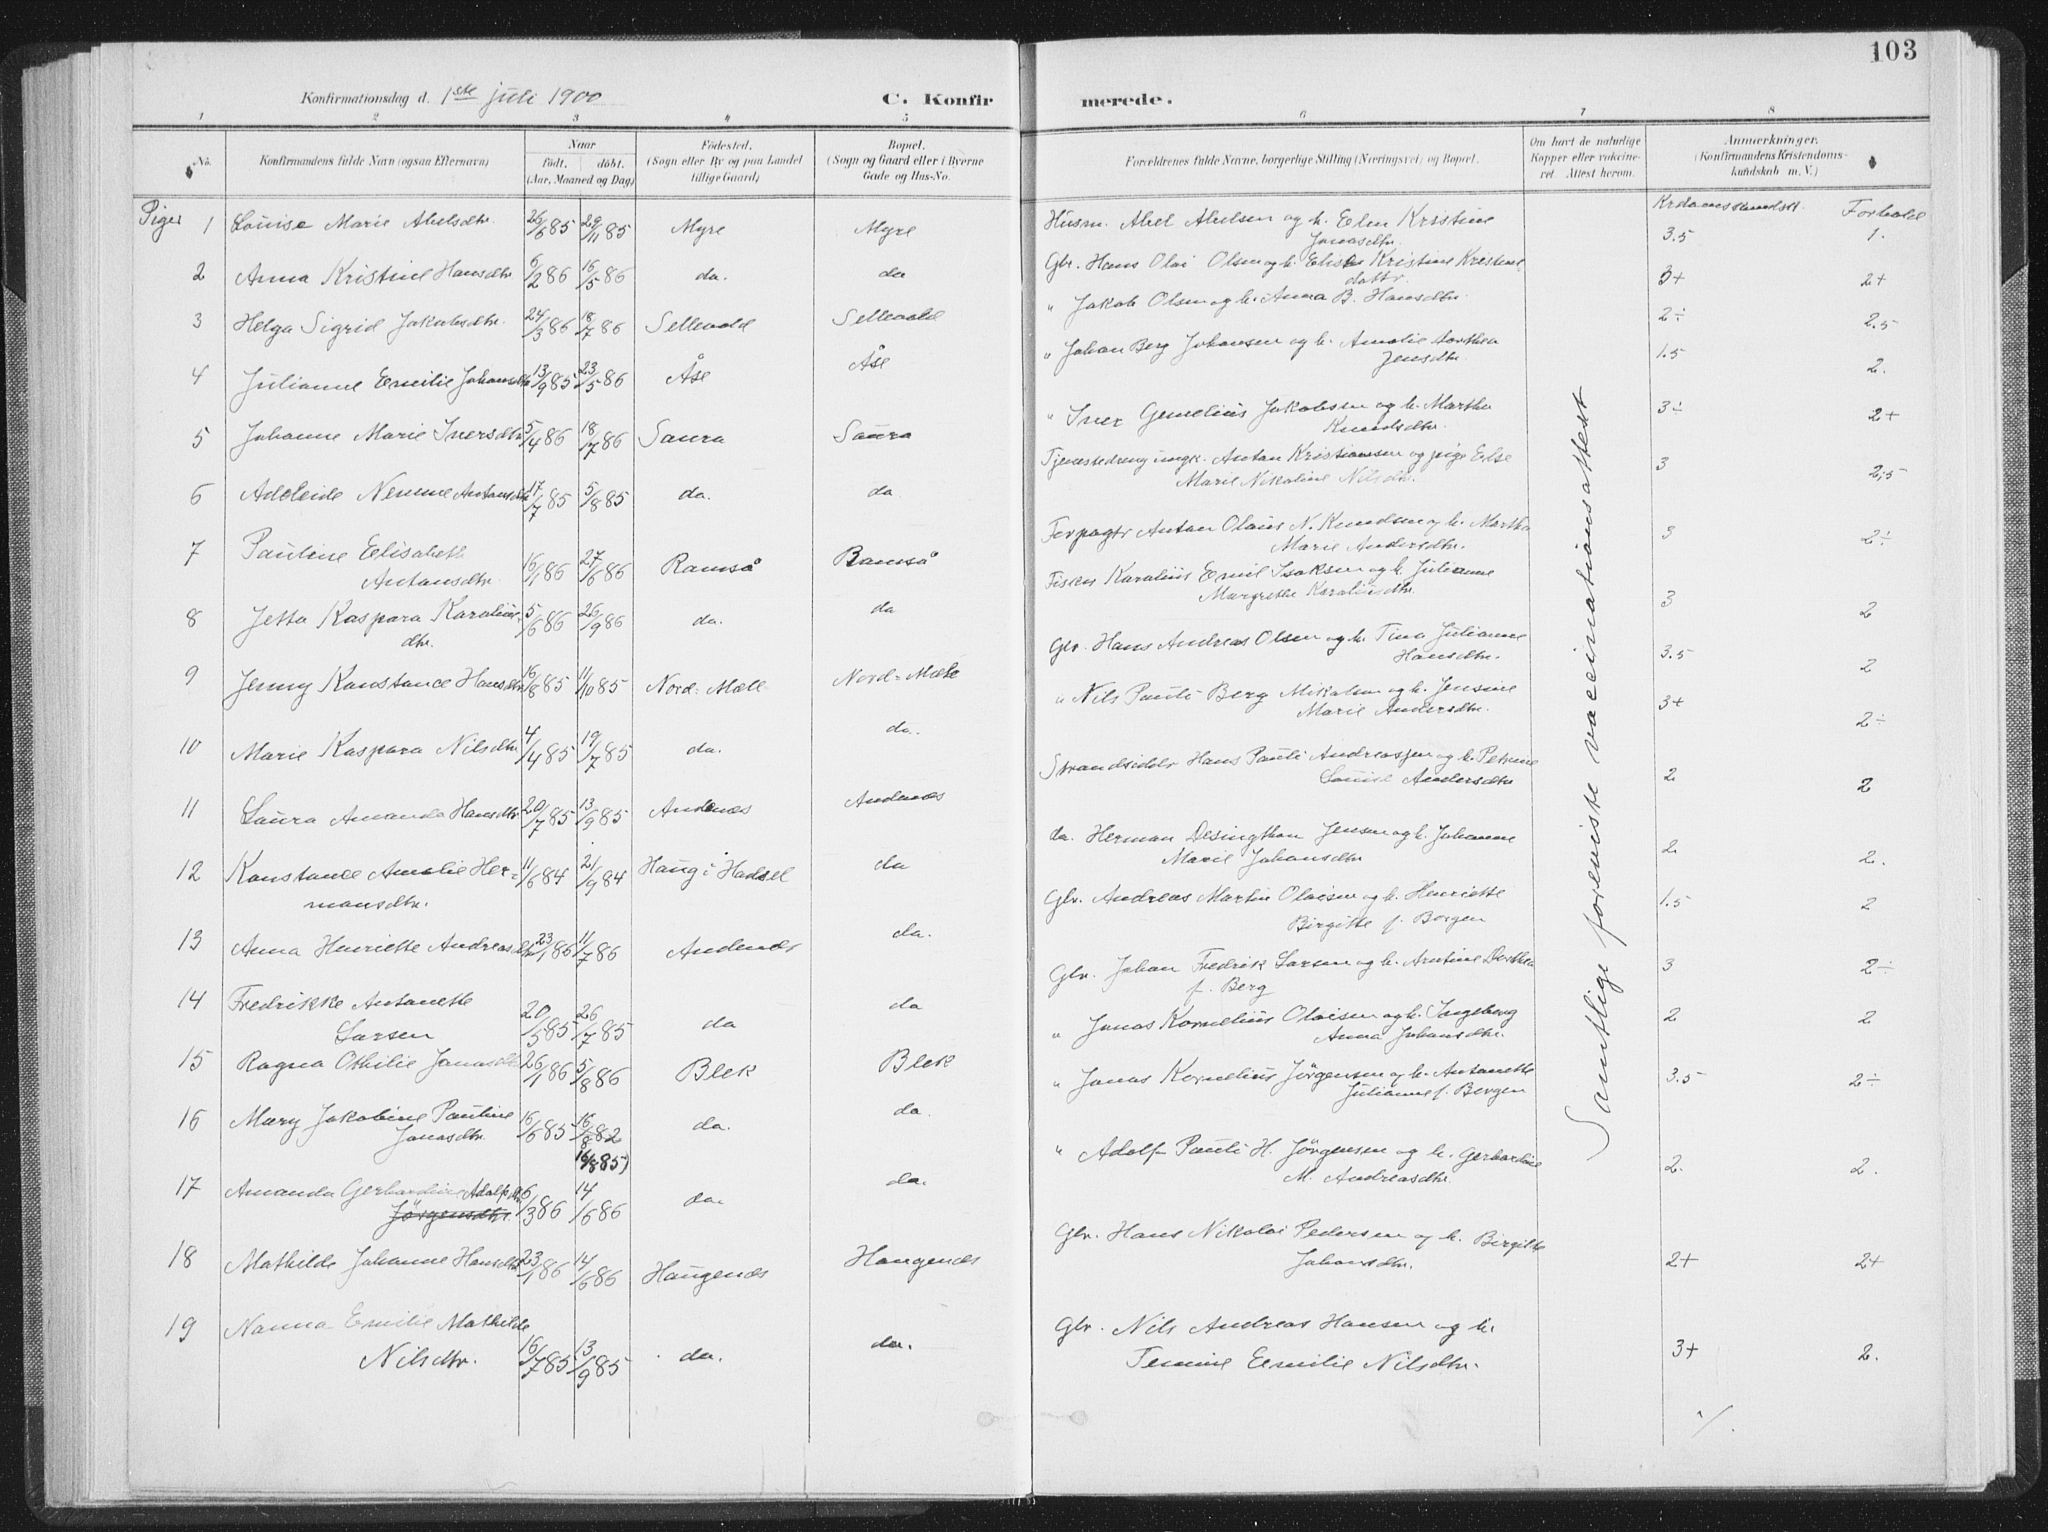 103
Konfirmationsdag d. 1ste juli 1900
C. Konfirmerede.
1 2 3 4 5 6 7 8
No. Konfirmandens fulde Navn (ogsaa Efternavn) Naar født, døbt, (Aar, Maaned og Dag) Fødested. (Sogn eller By og paa Landet tillige Gaard) Bopæl. (Sogn og Gaard eller i Byerne Gade og Hus-No. Forældrenes fulde Navne, borgerlige Stilling (Næringsvei) og Bopæl. Om havt de naturlige Kopper eller vakcineret. Attest herom. Anmærkninger. (Konfirmandens Kristendomskundskab m. V.)
Piger Krdomskundsk. Forhold
1 Louise Marie Abelsdtr. 26/6 85 29/11 85 Myre Myre Husm. Abel Abelsen og h. Elen Kristine 3.5 1.
Jonasdtr.
2 Anna Kristine Hansdtr 6/2 86 16/5 86 do. do Gbr. Hans Olai Olsen og h. Elise Kristine 3+ 2+
dattr.
3 Helga Sigrid Jakobsdtr. 24/3 86 18/7 86 Sellevold Sellevold " Jakob Olsen og h. Anna B. Hansdtr. 2÷ 2.5
4 Julianne Emilie Johansdtr 13/9 85 23/5 86 Åse Åse " Johan Berg Johansen og h. Amalie Dorthea 1.5 2.
Jensdtr.
5 Johanne Marie Iversdtr 5/4 86 18/7 86 Saura Saura " Iver Gemelius Jakobsen og h. Martha 3÷ 2+
Knudsdtr.
6 Adeleide Nemme Antonsdtr 17/7 85 5/8 85 do. do. Tjenestedreng ungk. Anton Kristiansen og pige Else 3 2,5
Marie Nikoline Nilsdtr.
7 Pauline Elisabeth 16/1 86 27/6 86 Ramså Ramså Forpagtr Anton Olaus N. Knudsen og h. Martha 3 2÷
Antonsdtr. Marie Andersdtr.
8 Jetta Kaspara Karolius- 5/6 86 26/9 86 do. do Fisker Karolius Emil Isaksen og h. Julianne 3 2
dtr. Margrethe Karoliusdtr.
9 Jenny Konstance Hansdtr 16/8 85 11/10 85 Nord-Mæle Nord-Mæle Gbr. Hans Andreas Olsen og h. Tina Julianne 3.5 2
Hansdtr.
10 Marie Kaspara Nilsdtr. 4/4 85 19/7 85 do. do. " Nils Pauli Berg Mikalsen og h. Jensine 3+ 2÷
Marie Andersdtr.
11 Laura Amanda Hansdtr 20/7 85 13/9 85 Andenæs Andenæs Strandsidder Hans Pauli Andreassen og h. Petrine 2 2
Louise Andersdtr
12 Konstance Amalie Her- 11/6 84 21/9 84 Haug i Hadsel do do. Herman Desingthon Jensen og h. Johanne 2 2.
mansdtr. Marie Johansdtr
13 Anna Henriette Andreasdtr 23/1 86 11/7 86 Andenæs do. Gbr. Andreas Martin Olaisen og h. Henriette 1.5 2
Birgitte f. Borgen
14 Fredrikke Antonette 20/5 85 26/7 85 do do Gbr. Johan Fredrik Larsen og h. Arntine Dorthea 3 2÷
Larsen f. Berg
15 Ragna Othilie Jonasdtr 26/1 86 5/8 86 Blek Blek " Jonas Kornelius Olaisen og h. Ingeborg 2 2
Anna Johansdtr.
16 Mary Jakobine Pauline 16/6 85 16/8 82 do. do. " Jonas Kornelius Jörgensen og h. Antonette 3.5 2÷
Jonasdtr. 16/8 85) Julianne f. Bergen
17 Amanda Gerhardine Adolfsdtr 6/3 86 14/6 86 do. do. " Adolf Pauli H. Jörgensen og h. Gerhardine 2. 2.
Jörgensdtr. M. Andreasdtr.
18 Mathilde Johanne Hansdtr 23/1 86 14/6 86 Haugenæs Haugenæs Gbr. Hans Nikolai Pedersen og h. Birgitte 2+ 2+
Johansdtr.
19 Nanna Emilie Mathilde 16/7 85 13/9 85 do. do. Gbr. Nils Andreas Hansen og h. 3+ 2.
Nilsdtr. Temine Emilie Nilsdtr.
Samtlige foreviste vaccinationsattest